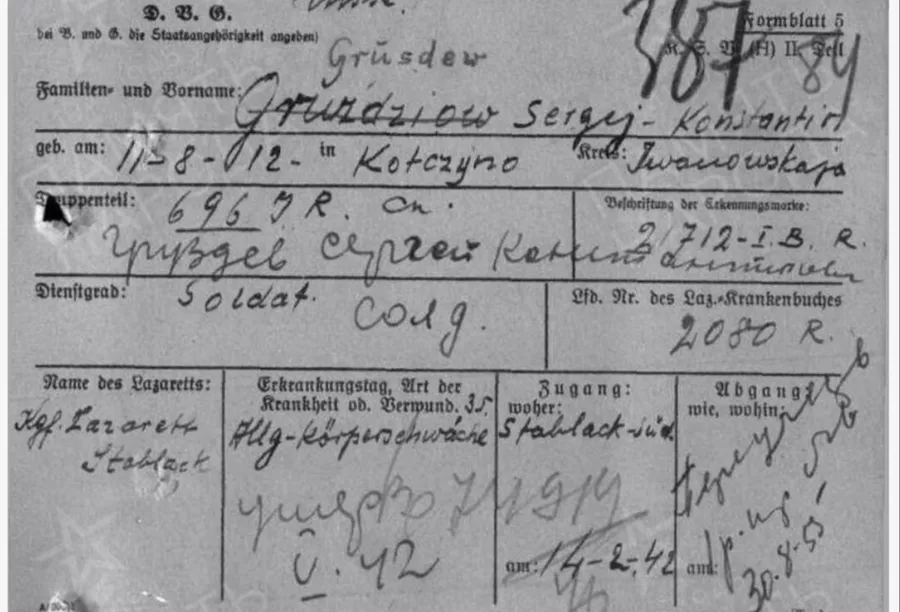 D. B. G.
bei B. und G. die Staatsangehörigkeit angeben)
Formblatt 5
K. S. V. (H) II. Teil
84
Grüsdew
Familien- und Vorname: Gruzdziow Sergej - Konstantin
geb. am: 11-8-12- in Kotczyno Kreis: Iwanowskaja
Truppenteil: 696 I R. Сп.
Beschriftung der Erkennungsmarke:
21712-I.B. R.
Груздев Сергей Константинович
Dienstgrad: Soldat. Солд.
Lfd. Nr. des Laz.-Krankenbuches
2080 R.
Name des Lazaretts:
Kgf. Lazarett
Stablack
Erkrankungstag, Art der
Krankheit od. Verwund. 35.
Allg-Körperschwäche
умер
V. 42
Zugang:
woher:
Stablack-süd.
am: 14-2-42
Abgang:
wie, wohin:
am:
30.8.51